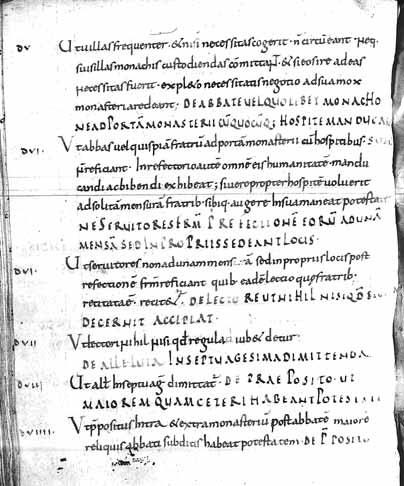 DV Ut villas frequenter. & nisi necessitas cogerit. n circueant. neq.
suis illas monachis custodiendas committant. & si eos ire ad eas
necessitas fuerit. expl&o necessitatis negotio ad sua mox
monasteria redeant. DE ABBATE VEL QUOLIBET MONACHO
NE AD PORTA MONASTERII CU QUOCUQ; HOSPITE MANDUCA
DVI Ut abbas vel quispia fratru ad porta monasterii cu hospitibus
n reficiant. In refectorio aute omne eis humanitate mandu
candi ac bibendi exhibeat; si vero propter hospite voluerit
ad solita mensura fratrib. sibiq. augere. In sua maneat potestate
NE SERVITORES REFECTIONE EORU AD UNA
MENSA SED IN PROPRIIS SEDEANT LOCIS.
DVI Ut servitores non ad una mensa sed in propriis locis post
refectione frm reficiant quib eade lectio que fratrib.
recitata recite&. DE LECTORE UT NIHIL NISI QD
DECERNIT ACCIPIAT.
DVII Ut lector nihil nisi qd regula iub& ei detur.
DE ALLELUIA IN SEPTUAGESIMA DIMITTENDA
DVIII Ut all& In septuag dimittat. DE PRAEPOSITO UT
MAIOREM QUAM CETERI HABEANT POTESTATE
DVIIII. Ut ppositus Intra & extra monasterium post abbate maiore
reliquis abbati subditis habeat potestatem. DE P POSITO